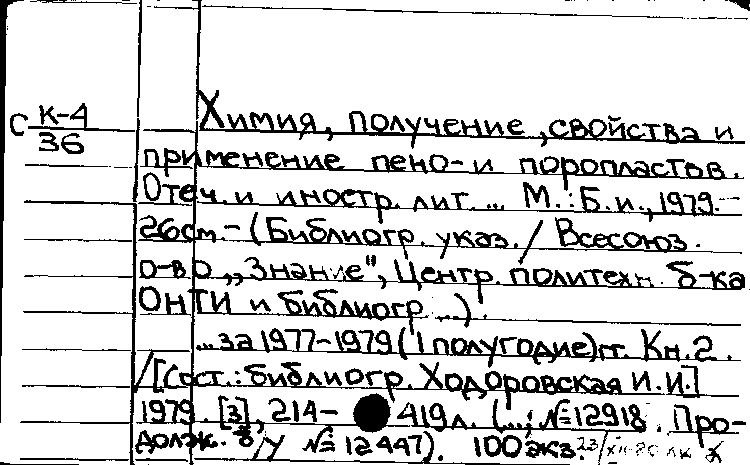 С К-4
36
Химия, получение, свойства и
применение пено- и поропластов.
Отеч. и иностр. лит. ... М.: Б.и., 1979.-
26см.- (Библиогр. указ. / Всесоюз.
о-во „Знание", Центр. политехн. б-ка
ОНТИ и библиогр. ...).
...за 1977-1979 (1 полугодие) гг. Кн. 2.
/[Сост.: библиогр. Ходоровская И.И.]
1979. [3], 214- 419 л. (...; № 12918. Про-
должк. б/у № 12447). 100 экз.